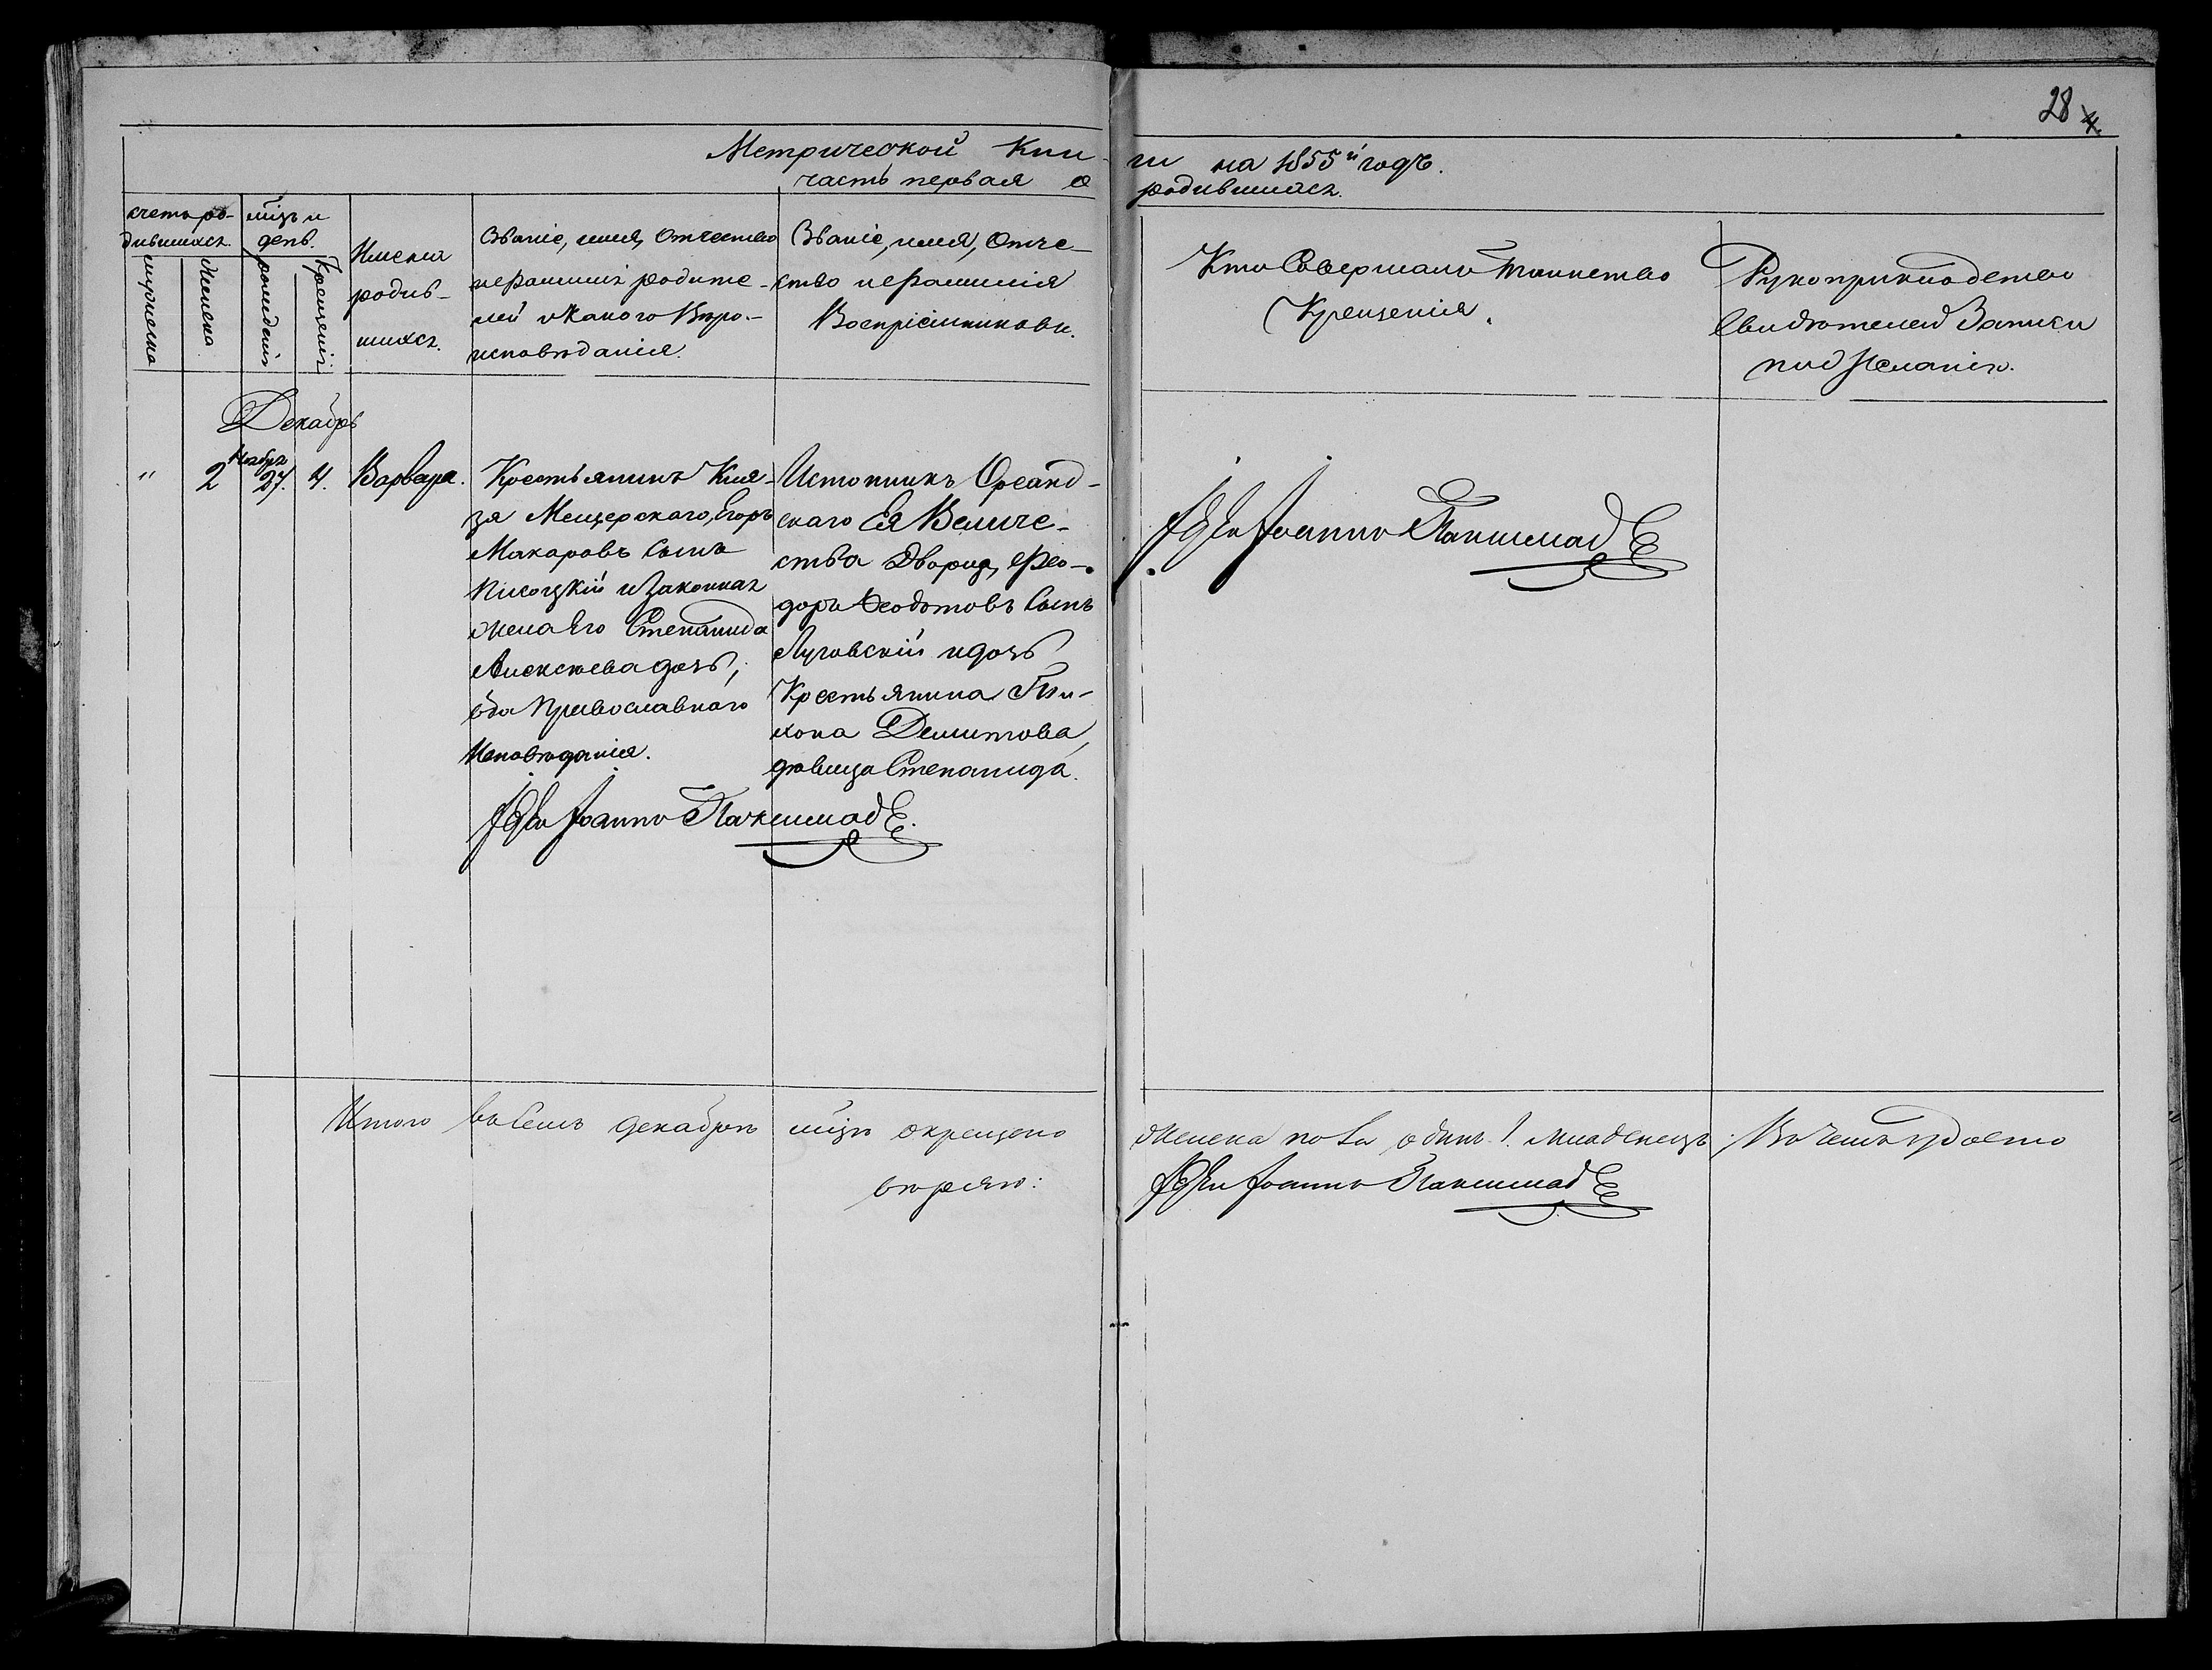 28
4
Метрической Кни-
ги на 1855й годъ.
часть первая о
родившихся.
счетъ ро-
дившихся.
мужеска
женска
мцъ и
день.
рожденія
Крещенія
Имена
родив-
шихся.
Званіе, имя, Отчество
и фамилія родите-
лей и какого Веро-
исповѣданія.
Званіе, имя, Отче-
ство и фамилія
Воспріемниковъ.
Кто Совершалъ таинство
Крещенія.
Рукоприкладство
Свидѣтелей Записи
по Желанію.
Декабрь
Ноября
" 2 27. 4. Варвара.
Крестьянинъ Кня-
зя Мещерскаго, Егоръ
Макаровъ Сынъ
и Законная
жена Его Степанида
Алексѣева дочь,
оба Православнаго
Исповѣданія.
Истопникъ Ореанд-
скаго Ея Величе-
ства Дворца, Фео-
доръ Феодотовъ Сынъ
Луговскій и дочь
Крестьянина Ти-
хона
дѣвица Степанида.
Іоаннъ
Іоаннъ
Итого въ Семъ декабрѣ мцѣ окрещено
женска пола одинъ 1. младенецъ. Въ чемъ удосто
вѣряю:
Іоаннъ